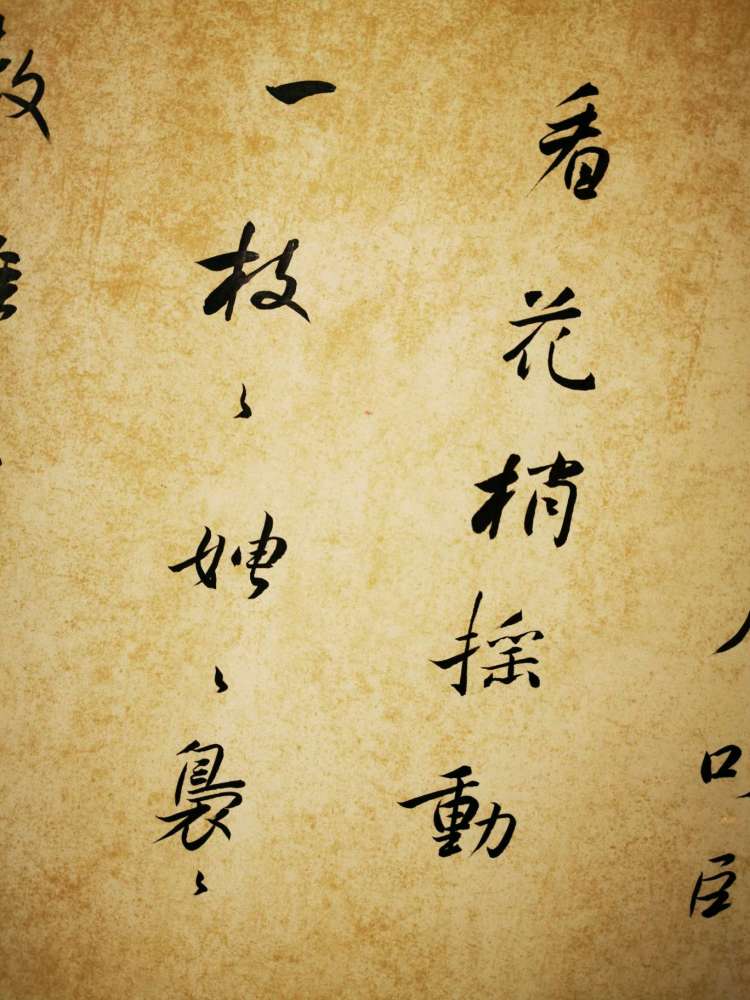 看花梢搖動
一枝〻娉〻裊〻